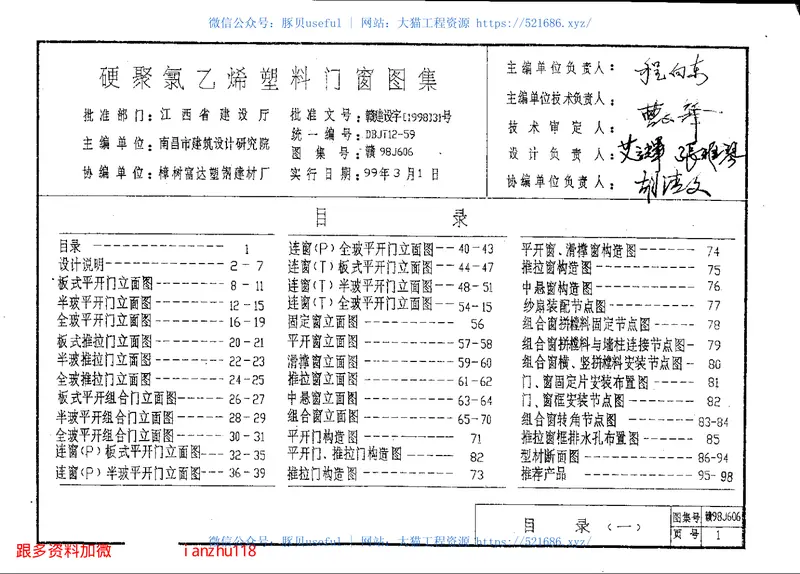 微信公众号：豚贝useful | 网站：大猫工程资源 https://521686.xyz/
硬聚氯乙烯塑料门窗图集
批准部门：江西省建设厅
主编单位：南昌市建筑设计研究院
协编单位：樟树富达塑钢建材厂
批准文号：赣建设字[1998]31号
统一编号：DBJT12-59
图集号：赣98J606
实行日期：99年3月1日
主编单位负责人：程向东
主编单位技术负责人：
技术审定人：
设计负责人：
协编单位负责人：胡清文
目 录
目录 1
设计说明 2-7
板式平开门立面图 8-11
半玻平开门立面图 12-15
全玻平开门立面图 16-19
板式推拉门立面图 20-21
半玻推拉门立面图 22-23
全玻推拉门立面图 24-25
板式平开组合门立面图 26-27
半玻平开组合门立面图 28-29
全玻平开组合门立面图 30-31
连窗(P)板式平开门立面图 32-35
连窗(P)半玻平开门立面图 36-39
连窗(P)全玻平开门立面图 40-43
连窗(T)板式平开门立面图 44-47
连窗(T)半玻平开门立面图 48-51
连窗(T)全玻平开门立面图 54-15
固定窗立面图 56
平开窗立面图 57-58
滑撑窗立面图 59-60
推拉窗立面图 61-62
中悬窗立面图 63-64
组合窗立面图 65-70
平开门构造图 71
平开门、推拉门构造图 82
推拉门构造图 73
平开窗、滑撑窗构造图 74
推拉窗构造图 75
中悬窗构造图 76
纱扇装配节点图 77
组合窗拼樘料固定节点图 78
组合窗拼樘料与墙柱连接节点图 79
组合窗横、竖拼樘料安装节点图 80
门、窗固定片安装布置图 81
门、窗框安装节点图 82
组合窗转角节点图 83-84
推拉窗框排水孔布置图 85
型材断面图 86-94
推荐产品 95-98
目 录 (一)
图集号 赣98J606
页号 1
微信公众号：豚贝useful | 网站：大猫工程资源 https://521686.xyz/
跟多资料加微 ianzhu118